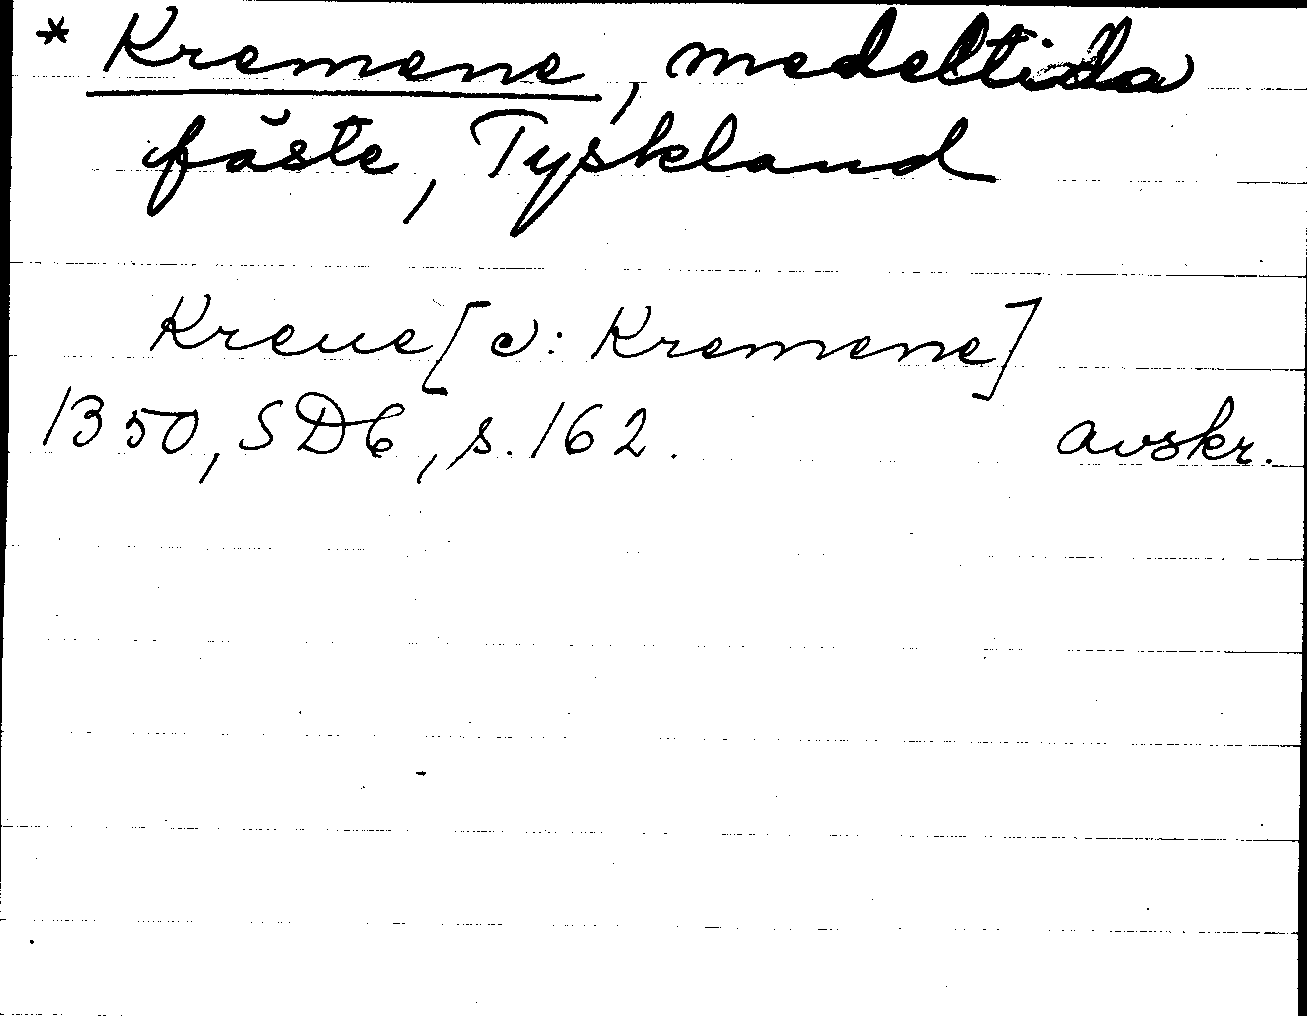 * Kremene, medeltida
fäste, Tyskland
Kreue [ɔ: Kremene]
1350, SD6, s. 162. avskr.